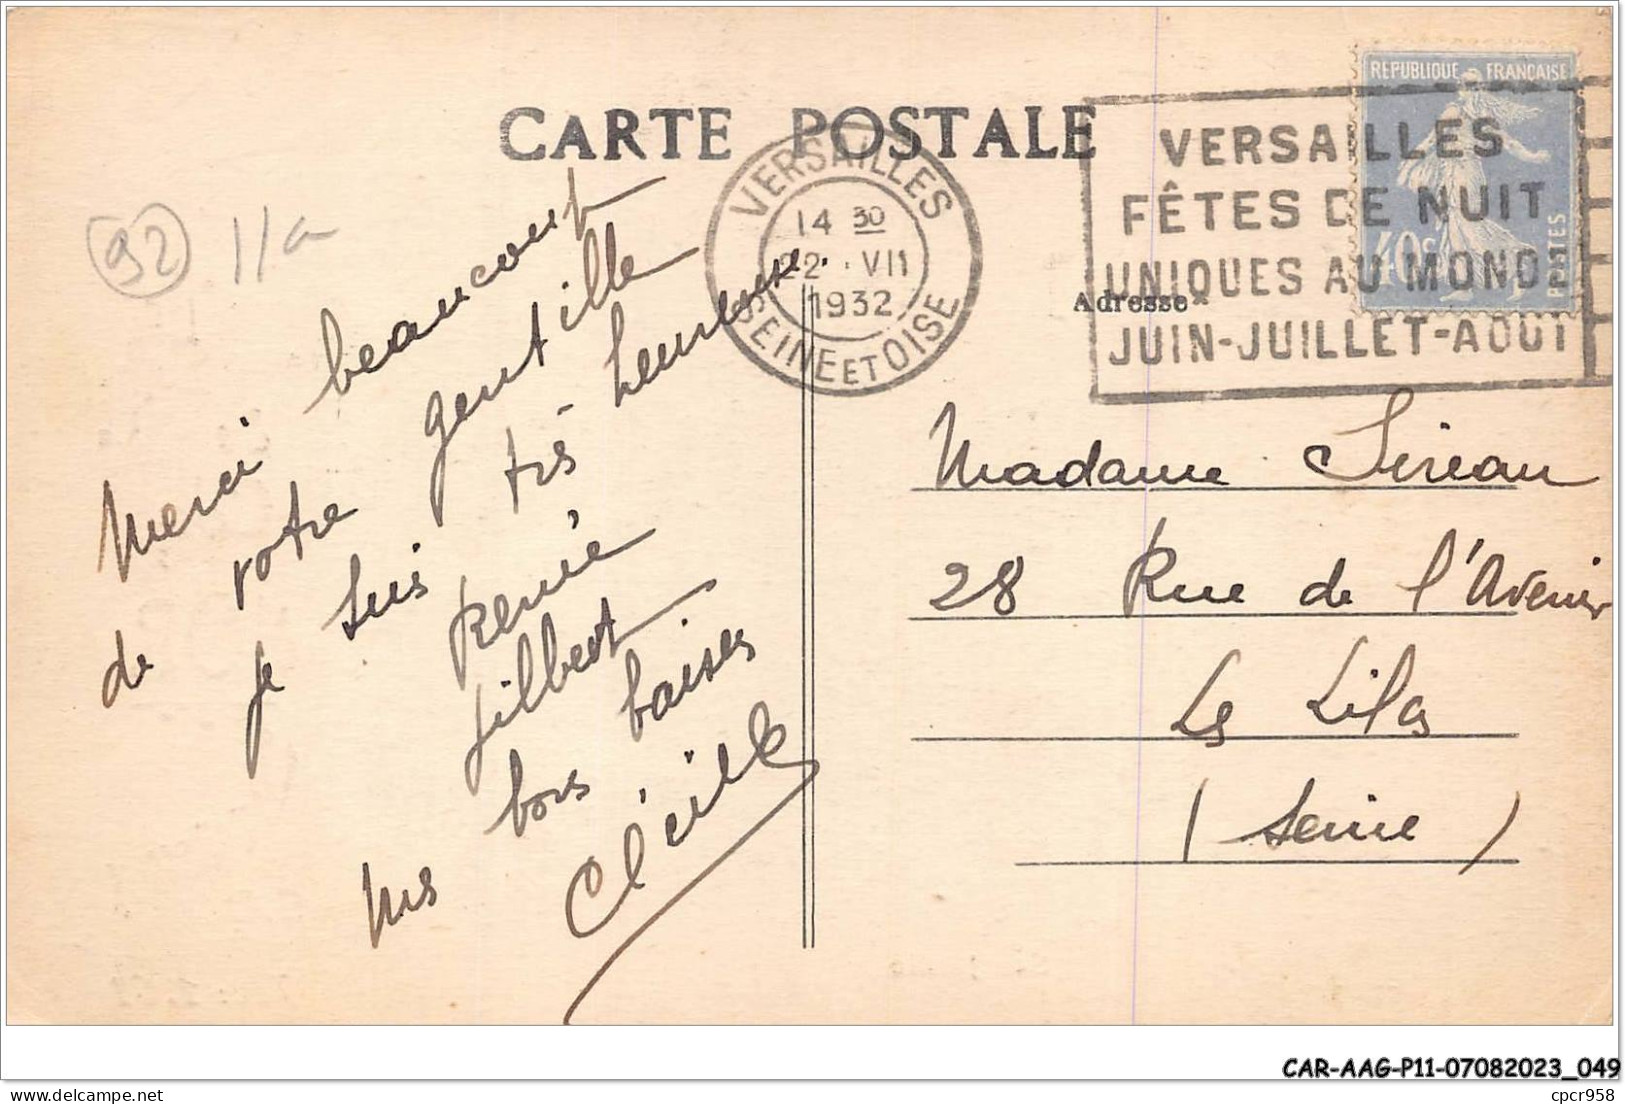 CARTE POSTALE
VERSAILLES
14 30
22 · VII
1932
SEINE ET OISE
VERSAILLES
FÊTES DE NUIT
UNIQUES AU MONDE
JUIN-JUILLET-AOUT
REPUBLIQUE FRANCAISE
40c
POSTES
Adresse
92 11a
Merci beaucoup
de votre gentille
je suis très heureuse
Renée
Gilbert
bons baisers
Madame Sireau
28 Rue de l'Avenir
Les Lilas
(Seine)
CAR-AAG-P11-07082023_049
cpcr958